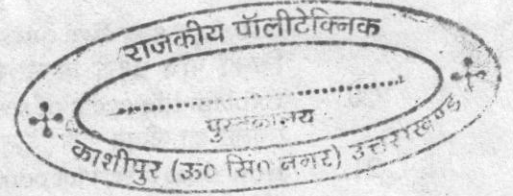 राजकीय पॉलीटेक्निक
पुस्तकालय
काशीपुर (ऊ० सिं० नगर) उत्तराखण्ड